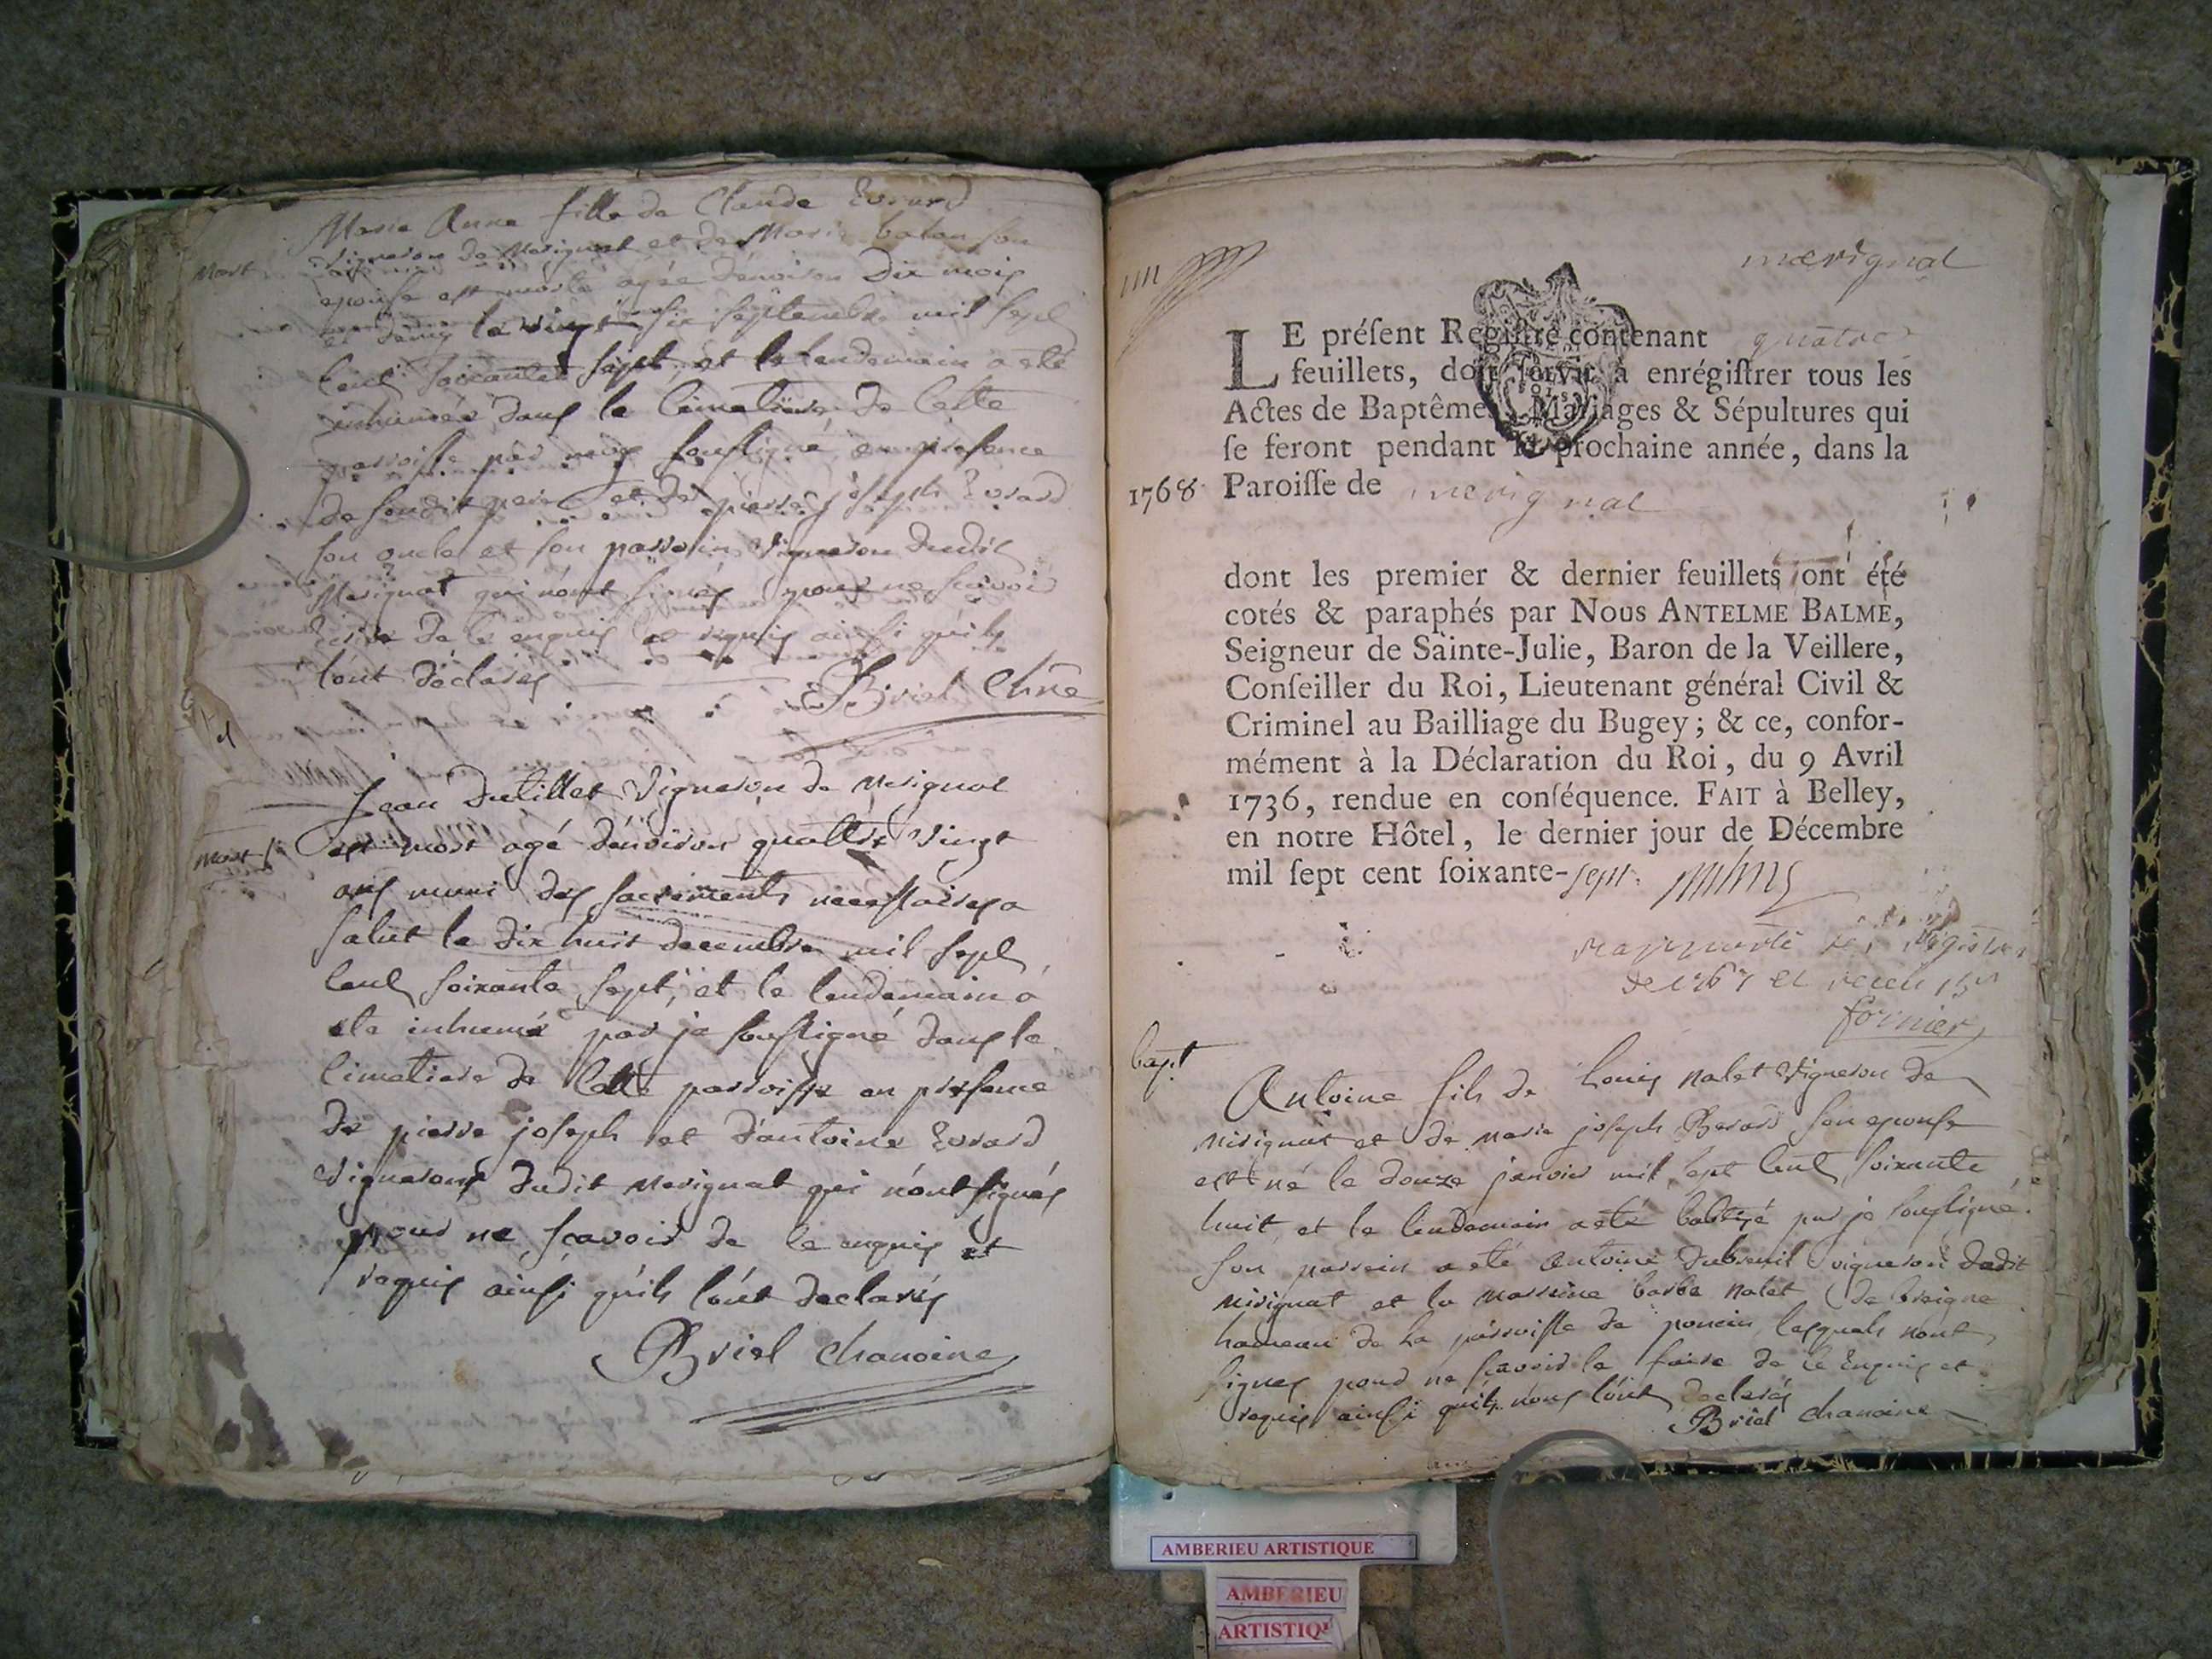 Marie Anne fille de Claude Evrard
vigneron de Merignat et de Marie balan son
Mort
epouse est morte agée d'énviron dix mois
et demy le vingt six septembre mil sept
cent soixante sept, et le lendemain a eté
inhumée dans le cimetiere de cette
parroisse par nous soussigné en presence
de son dit pere et de pierre joseph Evrard
son oncle et son parrein vigneron dudit
Merignat qui n'ont signés pour ne scavoir
de ce enquis et requis ainsi qu'ils
l'ont déclarés
Briel Chne
Jean Dutillet vigneron de Merignat
Mort
est mort agé d'énviron quattre vingt
ans muni des sacrements necessaires a
salut le dix huit decembre mil sept
cent soixante sept, et le lendemain a
ete inhumé par je soussigné dans le
cimetiere de cette parroisse en presence
de pierre joseph et d'antoine Evrard
vignerons dudit Merignat qui n'ont signés
pour ne scavoir de ce enquis et
requis ainsi qu'ils l'ont declarés
Briel chanoine
mœrignat
LE préſent Regiſtre contenant quatre
feuillets, doit ſervir à enrégiſtrer tous les
Actes de Baptêmes, Mariages & Sépultures qui
ſe feront pendant la prochaine année, dans la
1768 Paroiſſe de merignat
dont les premier & dernier feuillets ont été
cotés & paraphés par Nous ANTELME BALME,
Seigneur de Sainte-Julie, Baron de la Veillere,
Conſeiller du Roi, Lieutenant général Civil &
Criminel au Bailliage du Bugey ; & ce, confor-
mément à la Déclaration du Roi, du 9 Avril
1736, rendue en conſéquence. FAIT à Belley,
en notre Hôtel, le dernier jour de Décembre
mil ſept cent ſoixante-sept.
rapporté les registres
de 1767 et receu 15s
fornier
bapt
Antoine fils de Louis Nalet vigneron de
Mirignat et de Marie joseph Berard son epouse
est né le douze janvier mil sept cent soixante
huit, et le lendemain a eté babtizé par je soussigné.
son parrein a eté Antoine Dubreuil vigneron dudit
Mirignat et la Marreine barbe Nalet de breigne
hameau de La parroisse de poncin lesquels n'ont
signes pour ne scavoir le faire de ce Enquis et
requis ainsi qu'ils nous l'ont declarés
Briel chanoine
AMBERIEU ARTISTIQUE
AMBERIEU
ARTISTIQU